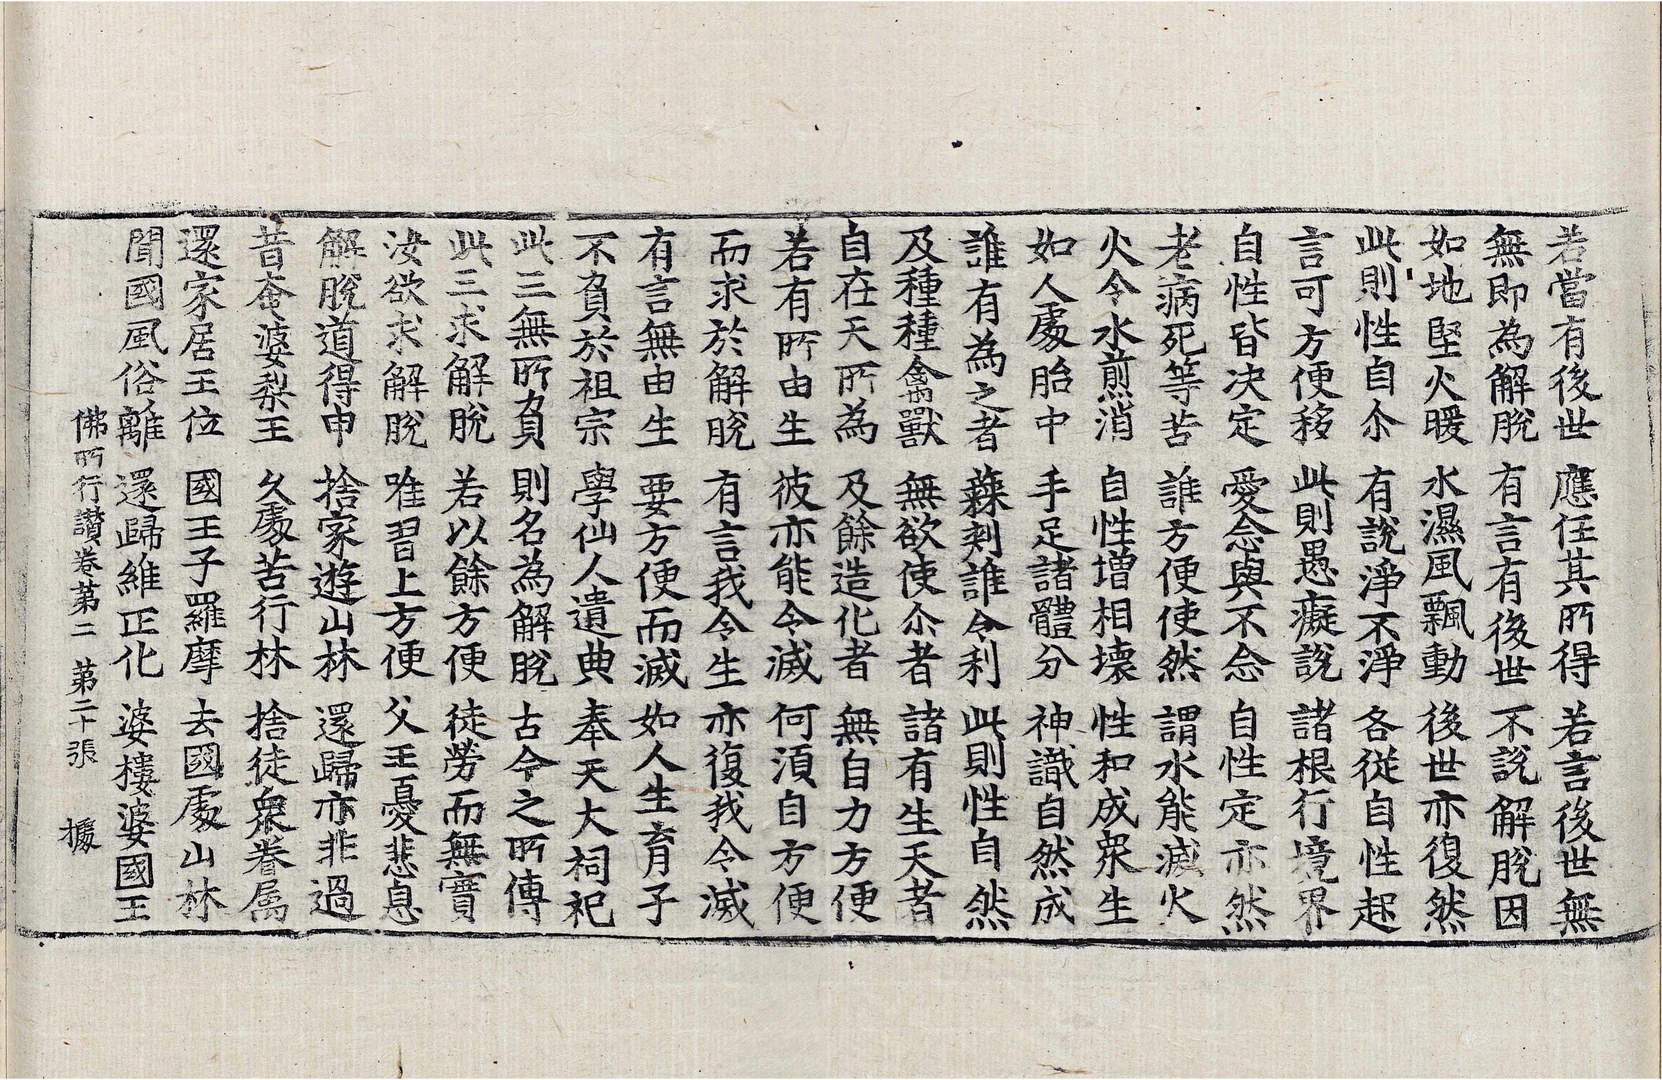 若當有後世　應任其所得　若言後世無
無即為解脫　有言有後世　不說解脫因
如地堅火暖　水濕風飄動　後世亦復然
此則性自尒　有說淨不淨　各從自性起
言可方便移　此則愚癡說　諸根行境界
自性皆決定　愛念與不念　自性定亦然
老病死等苦　誰方便使然　謂水能滅火
火令水煎消　自性增相壞　性和成衆生
如人處胎中　手足諸體分　神識自然成
誰有為之者　蕀刺誰令利　此則性自然
及種種禽獸　無欲使尒者　諸有生天者
自在天所為　及餘造化者　無自力方便
若有所由生　彼亦能令滅　何須自方便
而求於解脫　有言我令生　亦復我令滅
有言無由生　要方便而滅　如人生育子
不負於祖宗　學仙人遺典　奉天大祠祀
此三無所負　則名為解脫　古今之所傳
此三求解脫　若以餘方便　徒勞而無實
汝欲求解脫　唯習上方便　父王憂悲息
解脫道得申　捨家遊山林　還歸亦非過
昔奄婆梨王　久處苦行林　捨徒衆眷属
還家居王位　國王子羅摩　去國處山林
聞國風俗離　還歸維正化　婆樓婆國王
佛所行讃卷第二　第二十張　據